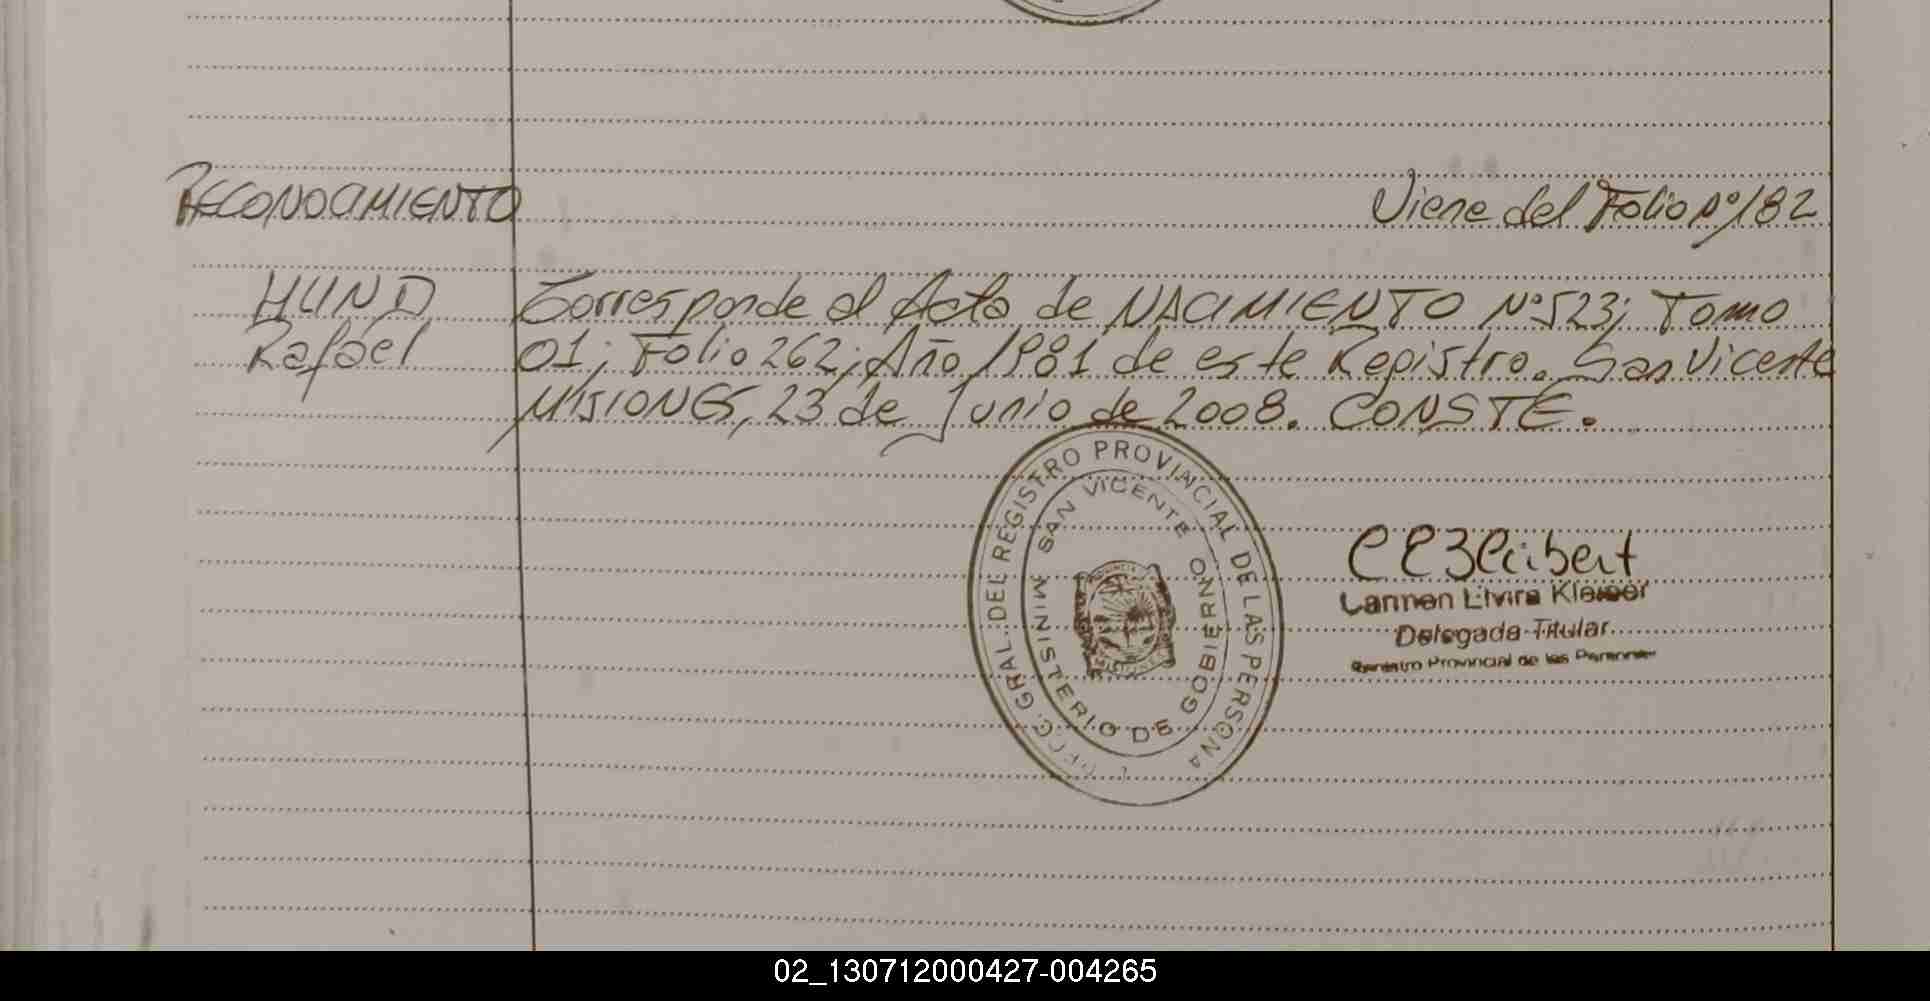 RECONOCIMIENTO
Viene del Folio Nº 182
HUND
Rafael
Corresponde al Acta de NACIMIENTO Nº 523; Tomo
01; Folio 262; Año 1981 de este Registro. San Vicente
MISIONES, 23 de Junio de 2008. CONSTE.
GRAL. DEL REGISTRO PROVINCIAL DE LAS PERSONA
SAN VICENTE
MINISTERIO DE GOBIERNO
PROVINCIA
MISIONES
Carmen Elvira
Delegada Titular
Registro Provincial de las Personas
02_130712000427-004265